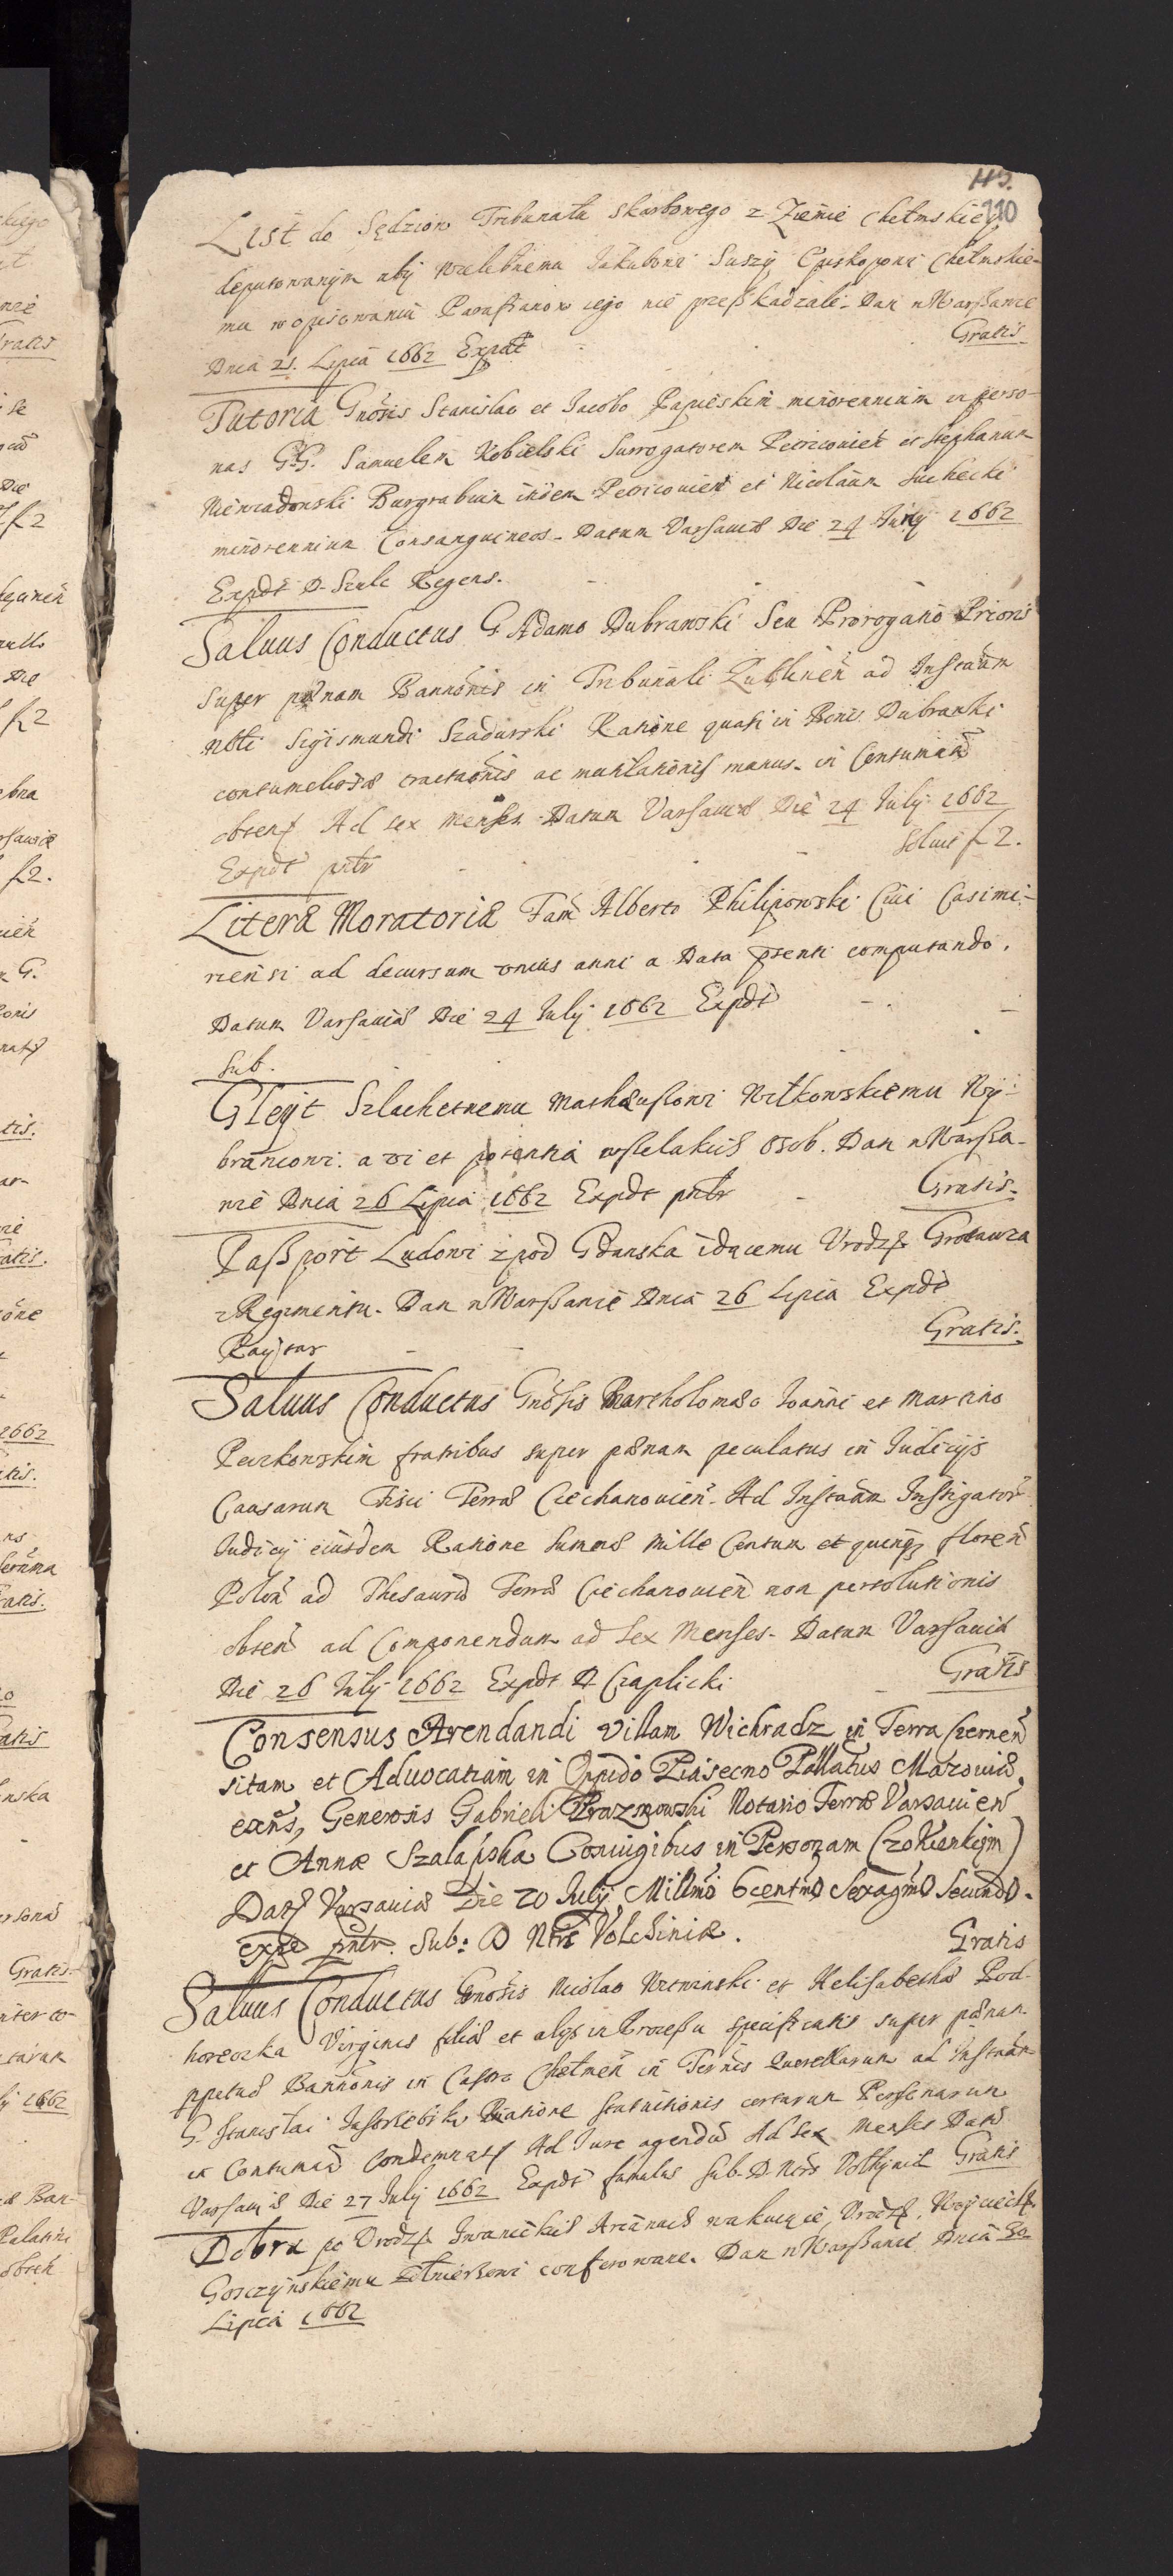 113.
110
List do Sędziow Tribunału skarbowego z Ziemie Chełmskiey
deputowanym aby wielebnemu Jakubowi Suszy Episkopowi Chełmskie-
mu w opisowaniu Parafianow iego nie przeßkadzali. Dan w Warßawie
Dnia 21. Lipca 1662 Expdt
Gratis
Tutoria Gnosis Stanislao et Jacobo Papieskim minorennium in perso-
nas G.G. Samuelem Kobielski Surrogatorem Petricouien et Stephanum
Niewiadomski Burgrabium ibidem Petricouien et Nicolaum Suchecki
minorennium Consanguineos. Datum Varsauiæ Die 24 July 1662
Expdt D. Szulc Regens.
Saluus Conductus G. Adamo Dubrawski Seu Prorogatio Prioris
super pænam Bannonis in Tribunali Lublinen ad Instaam
Nbli Sigismundi Szadurski Ratione quasi in Bonis Dubranki
contumeliosæ tractaonis ac mutilationis manus. in Contumam
obtent Ad sex menses. Datum Varsauiæ Die 24 July 1662
Expdt pntr
Soluit f 2.
Literæ Moratoriæ Fam Alberto Philipowski Ciui Casimi-
riensi ad decursum vnius anni a Data psenti computando.
Datum Varsauiæ Die 24 July 1662 Expdt
Sub.
Gleyt Szlachetnemu Matheußowi Witkowskiemu Wy-
brancowi. a vi et potentia wßelakich osob. Dan w Warßa-
wie Dnia 26 Lipca 1662 Expdt pntr
Gratis.
Paßport Ludowi zpod Gdanska idacemu Vrodz. Grotawza
z Regimentu. Dan w Warßawie Dnia 26 Lipca Expdt
Raytar
Gratis.
Saluus Conductus Gnosis Bartholomæo Joanni et Martino
Peczkowskim fratribus super pænam peculatus in Iudicijs
Causarum Fisci Terræ Ciechanouien. Ad Instaam Instigator
Iudicij eiusdem Ratione Summæ mille Centum et quinq floren
Polon ad Thesaurũ Terræ Ciechanouien non persolutionis
obten ad Componendum ad Sex Menses. Datum Varsauiæ
Die 26 July 1662 Expdt D Czaplicki
Gratis
Consensus Arendandi Villam Wichradz in Terra Czernen
sitam et Aduocatiam in Oppido Piasecno Pallatus Mazouiæ
exns, Generosis Gabrieli Prazmowski Notario Terræ Varsauien
et Annæ Szalapska Coniugibus in Personam Czokienkijm
Dat Varsauiæ Die 20 July Millmo 6centmo Sexagmo Secundo.
expd pntr. Sub: D Ntrs Volchiniæ.
Gratis
Saluus Conductus Gnosis Nicolao Witwinski et Helisabethæ Pod-
horecka Virginis filiæ et alijs in Processu specificatis super pænam
ppetuæ Bannonis in Castro Chełmen in Ternis Querellarum ad Instaam
G. Stanislai Ratione statuitionis certarum Personarum
in Contumã Condemnat Ad Iure agendũ Ad Sex Menses Datũ
Varsauiæ Die 27 July 1662 Expdt famulus Sub. D Ntrs Volhyniæ Gratis
Dobra po Vrodz. Iwanickich Arianach wakuiące, Vrodz. Woyciech.
Gosczynskiemu zołnierzowi conferowane. Dan w Warßawie Dnia 30
Lipca 1662